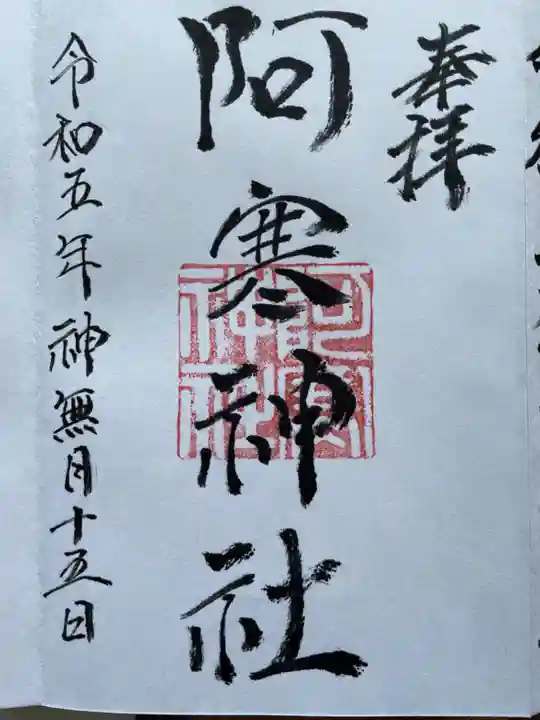 奉拝
阿寒神社
令和五年神無月十五日